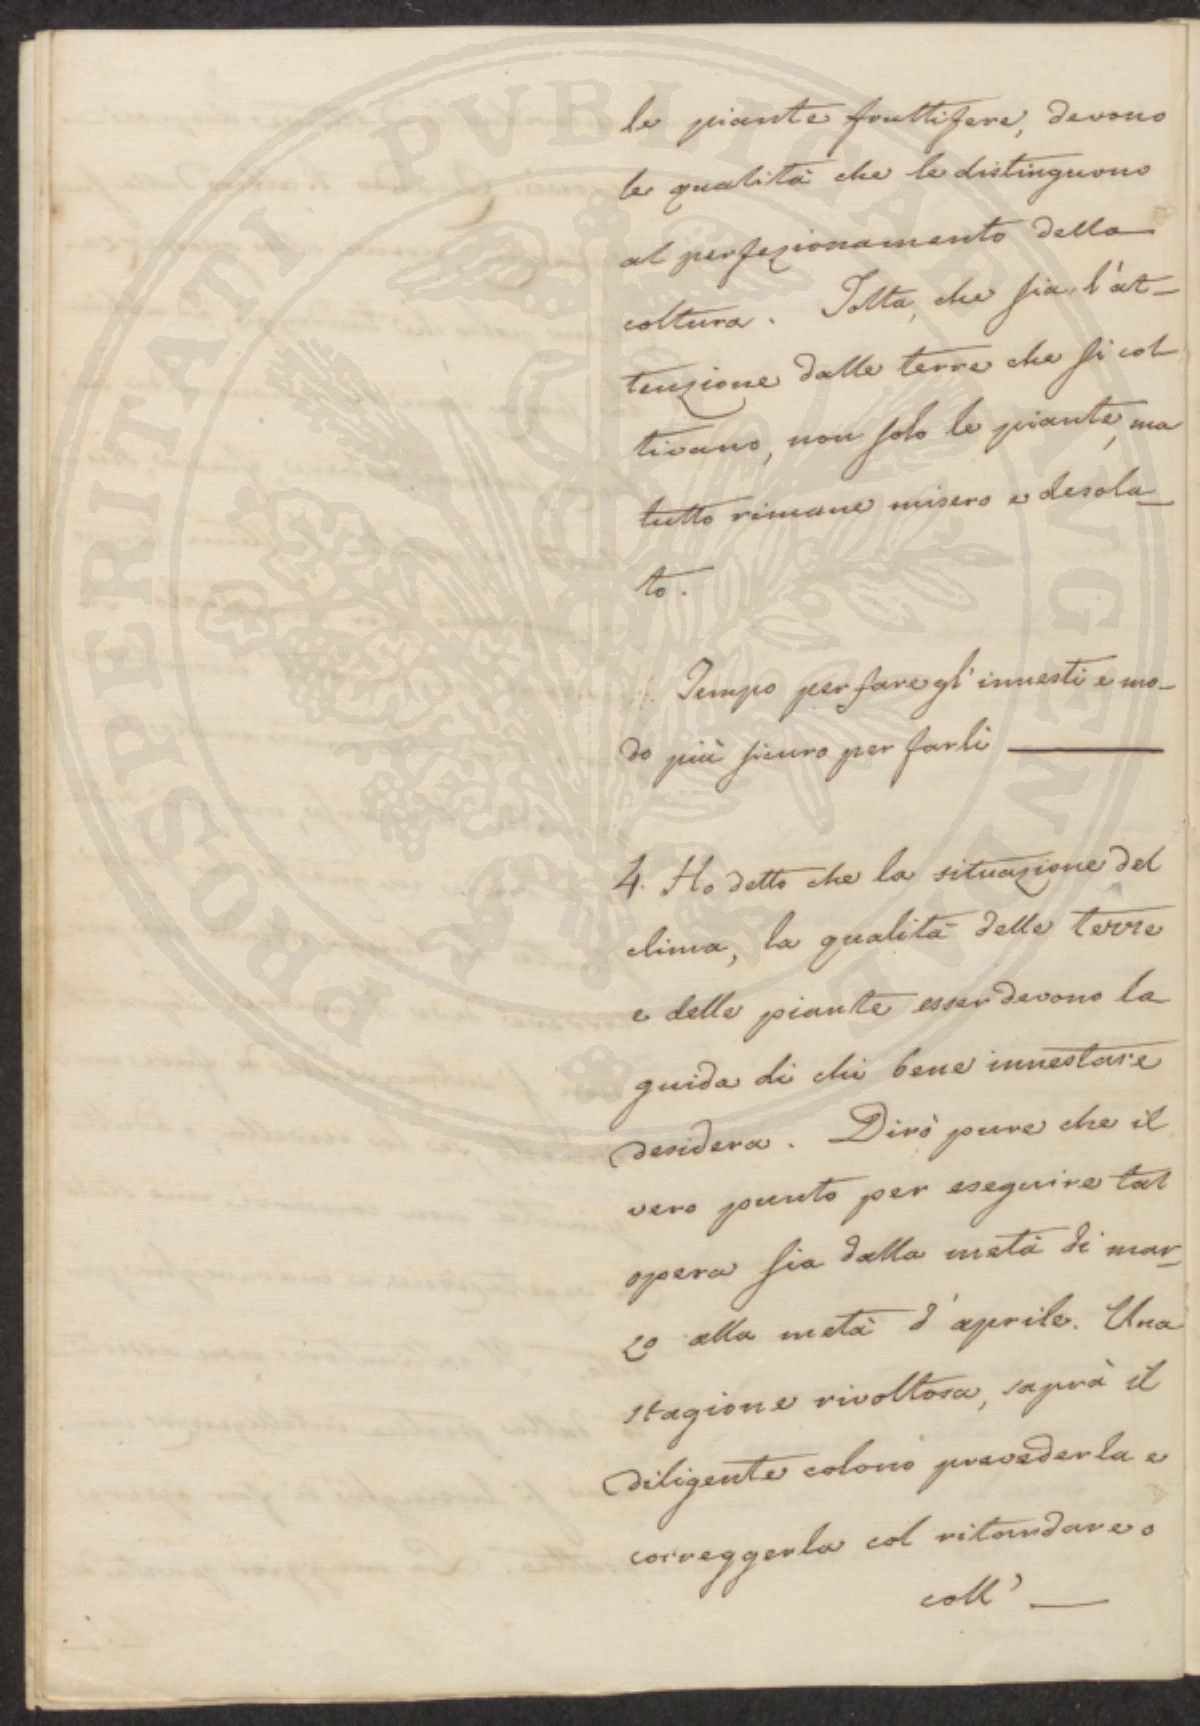 le piante fruttifere, devono
le qualità che le distinguono
al perfezionamento della
coltura. Tolta, che sia, l'at-
tenzione dalle terre che si col
tivano, non solo le piante, ma
tutto rimane misero e desola-
to.
Tempo per fare gl'innesti e mo-
do più sicuro per farli
4. Ho detto che la situazione del
clima, la qualità delle terre
e delle piante esser devono la
guida di chi bene innestare
desidera. Dirò pure che il
vero punto per eseguire tal
opera sia dalla metà di mar-
zo alla metà d'aprile. Una
stagione rivoltosa, saprà il
diligente colono prevederla e
correggerla col ritardare o
coll'
PROSPERITATI PUBLICAE AUGENDAE